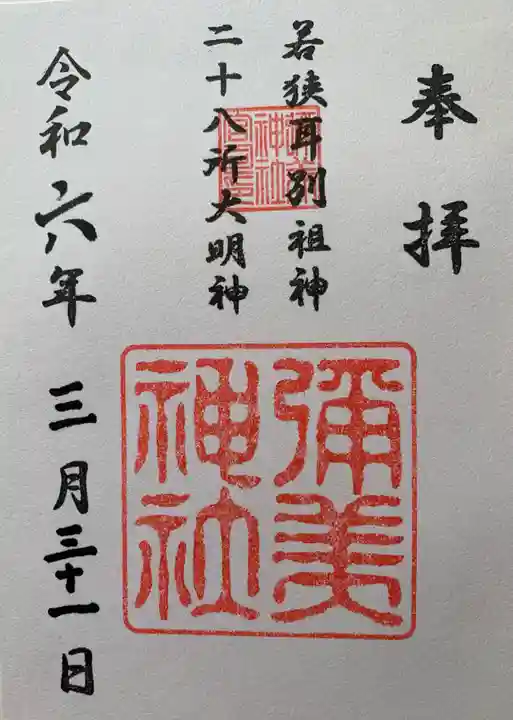 奉拝
若狭耳別祖神
二十八所大明神
彌美
神社
令和六年三月三十一日